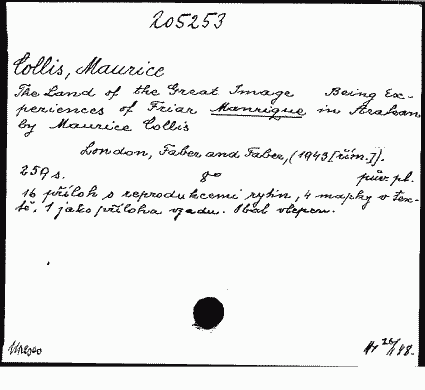 205253
Collis, Maurice
The Land of the Great Image Being Ex-
periences of Friar Manrique in Arakan
by Maurice Collis
London, Faber and Faber, (1943 [řím.]).
259 s. 8° pův. pl.
16 příloh s reprodukcemi rytin, 4 mapky v tex-
tě, 1 jako příloha vzadu. Obál. vlepen.